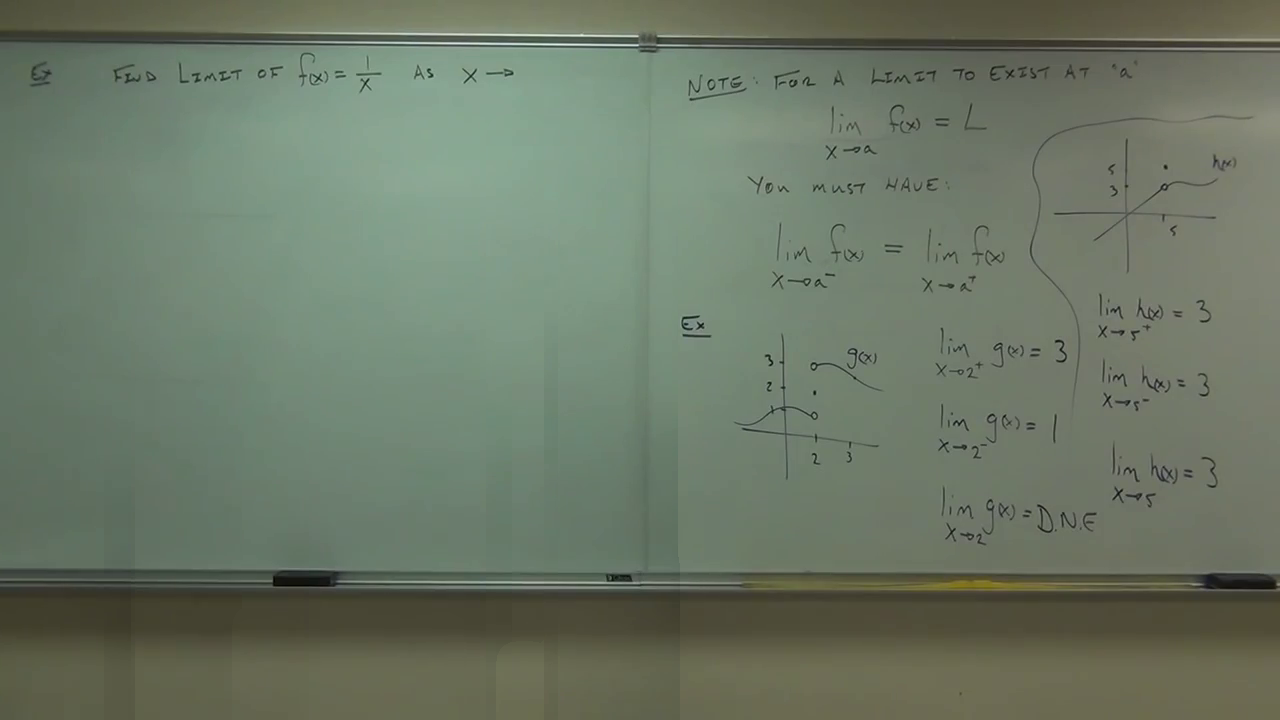 Ex FIND LIMIT OF f(x) = 1/x AS x→
NOTE: FOR A LIMIT TO EXIST AT "a"
lim x→a f(x) = L
YOU MUST HAVE:
lim x→a⁻ f(x) = lim x→a⁺ f(x)
Ex
3
2
1
2 3
g(x)
lim x→2⁺ g(x) = 3
lim x→2⁻ g(x) = 1
lim x→2 g(x) = D.N.E
5
3
5
h(x)
lim x→5⁺ h(x) = 3
lim x→5⁻ h(x) = 3
lim x→5 h(x) = 3